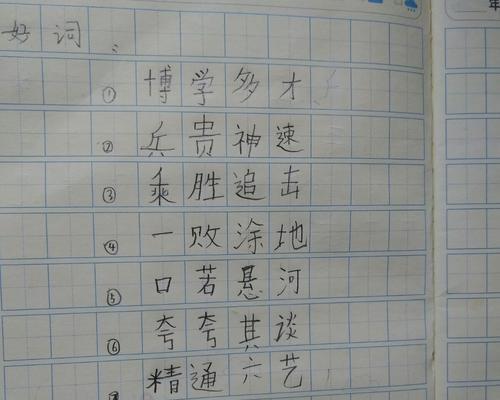 好词：
① 博学多才
② 兵贵神速
③ 乘胜追击
④ 一败涂地
⑤ 口若悬河
⑥ 夸夸其谈
精通六艺